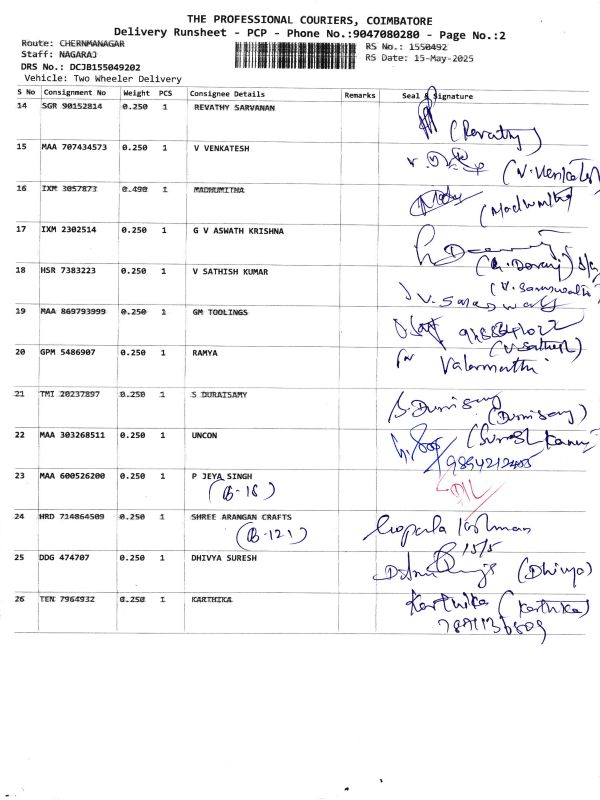 THE PROFESSIONAL COURIERS, COIMBATORE
Delivery Runsheet - PCP - Phone No.:9047080280 - Page No.:2
Route: CHERNMANAGAR
RS No.: 1550492
Staff: NAGARAJ
RS Date: 15-May-2025
DRS No.: DCJB155049202
Vehicle: Two Wheeler Delivery
S No Consignment No Weight PCS Consignee Details Remarks Seal & Signature
14 SGR 90152814 0.250 1 REVATHY SARVANAN
(Revathy)
15 MAA 707434573 0.250 1 V VENKATESH
16 IXM 3057873 0.490 1 MADHUMITHA
17 IXM 2302514 0.250 1 G V ASWATH KRISHNA
18 HSR 7383223 0.250 1 V SATHISH KUMAR
19 MAA 869793999 0.250 1 GM TOOLINGS
20 GPM 5486907 0.250 1 RAMYA
21 TMI 20237897 0.250 1 S DURAISAMY
22 MAA 303268511 0.250 1 UNCON
23 MAA 600526200 0.250 1 P JEYA SINGH
(B-16)
24 HRD 714864509 0.250 1 SHREE ARANGAN CRAFTS
(B-121)
15/5
25 DDG 474707 0.250 1 DHIVYA SURESH
(Dhivya)
26 TEN 7964932 0.250 1 KARTHIKA
Karthika (Karthika)